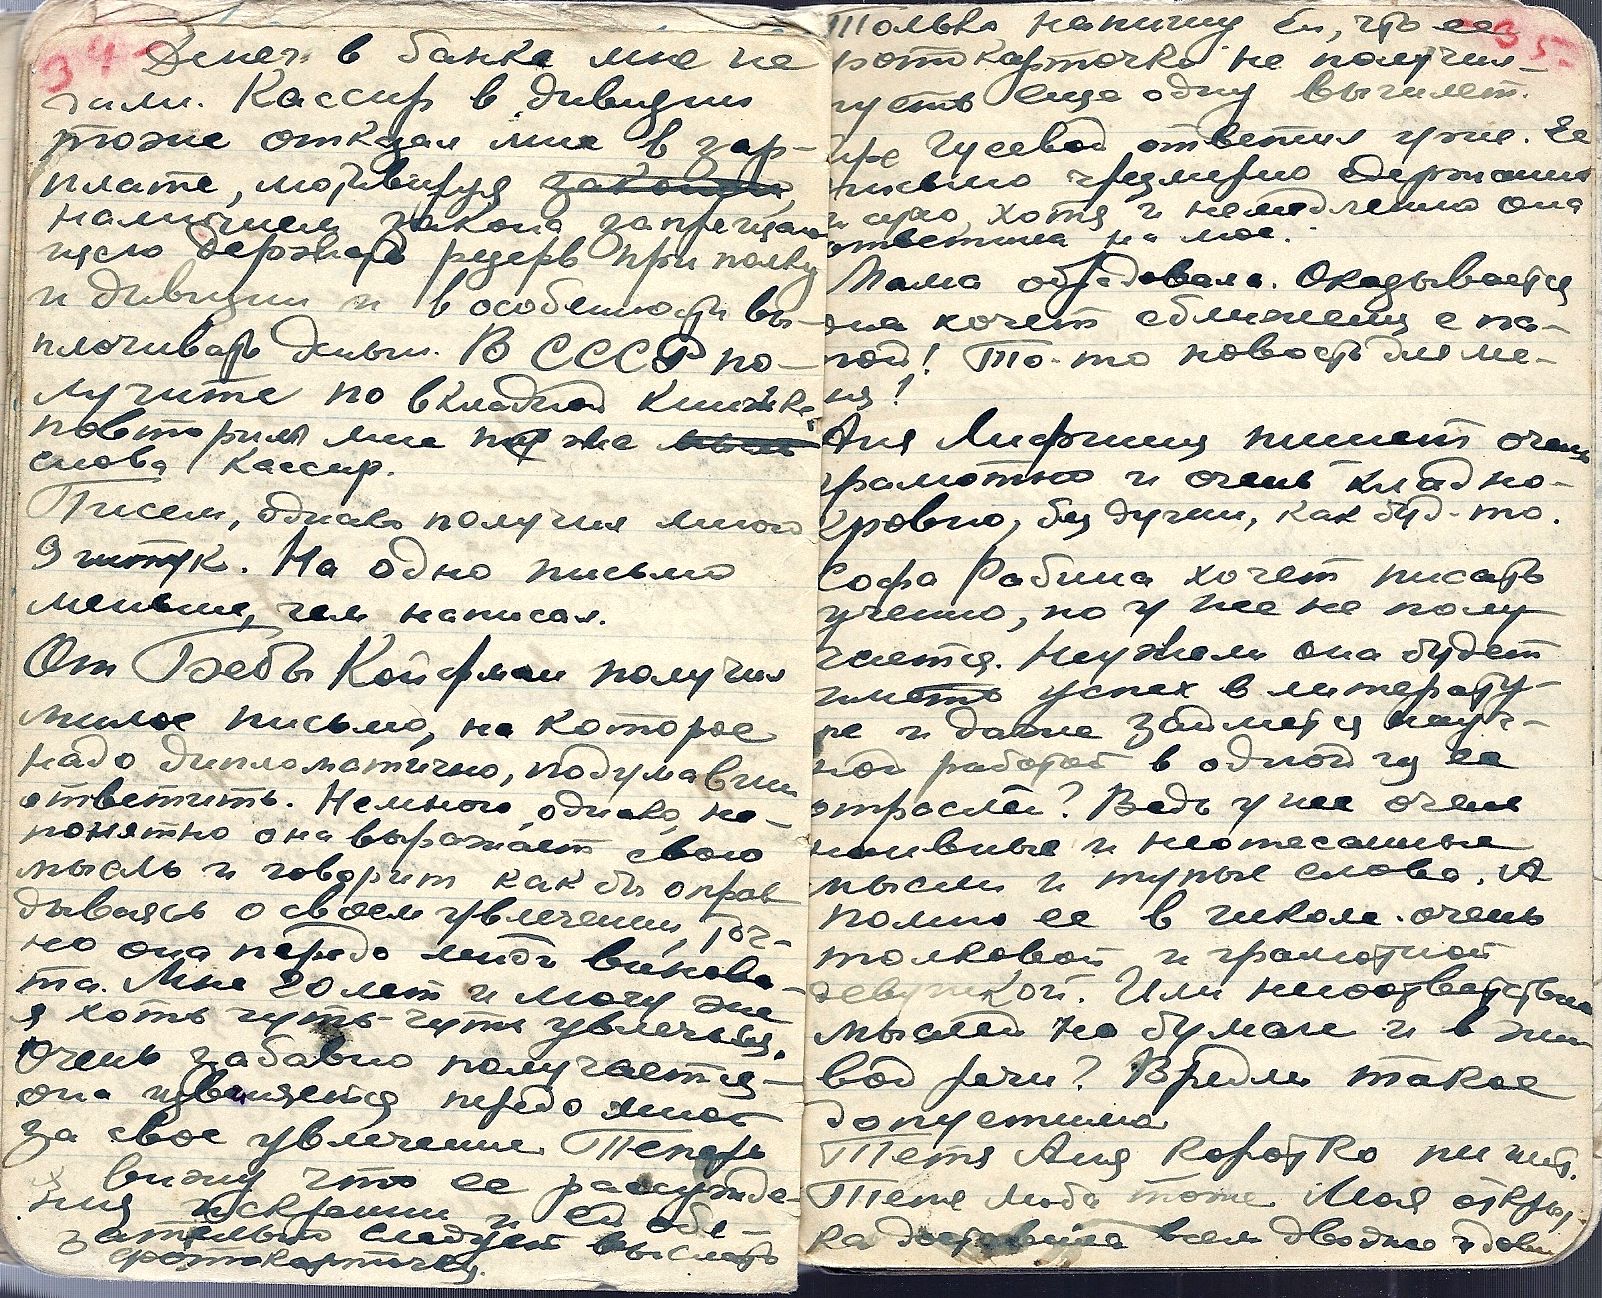 34
Денег в банке мне не
дали. Кассир в дивизии
тоже отказал мне в зар-
плате, мотивируя законом,
наличием закона запрещаю-
щего держать резерв при полку
и дивизии и в особенности вы-
плачивать деньги. В СССР по-
лучите по вкладной книжке
повторил мне то же
слова кассир.
Писем, однако получил много
9 штук. На одно письмо
меньше, чем написал.
От Бебы Койфман получил
милое письмо, на которое
надо дипломатично, подумавши
ответить. Немного, однако, не-
понятно она выражает свою
мысль и говорит как бы оправ
дываясь о своем увлечении, точ-
но она передо мной винова-
та. Мне 20 лет и могу же
я хоть чуть-чуть увлечься.
Очень забавно получается -
она извиняется передо мной
за свое увлечение. Теперь
я вижу что ее рассужде-
ния искренни и ей обя-
зательно следует выслать
фотокарточку.
35
Только напишу ей, что ее
фотокарточки не получил -
пусть еще одну вышлет.
Гусевой ответил уже. Ее
письмо чрезмерно сдержанно
и сухо, хотя и немедленно она
ответила на мое.
Мама обрадовала. Оказывается
она хочет сближения с па-
пой! То-то новость для ме-
ня!
Аня Лифшиц пишет очень
грамотно и очень хладно-
кровно, без души, как буд-то.
Софа Рабина хочет писать
учено, но у нее не полу
чается. Неужели она будет
иметь успех в литерату-
ре и даже займется науч-
ной работой в одной из ее
отраслей? Ведь у нее очень
наивные и неотесанные
мысли и тупые слова. А
помню ее в школе очень
толковой и грамотной
девушкой. Или несоответствие
мыслей на бумаге и в жи
вой речи? Врядли такое
допустимо
Тетя Аня коротко пишет.
Тетя Люба тоже. Моя откры
ка доставила всем двойное удов